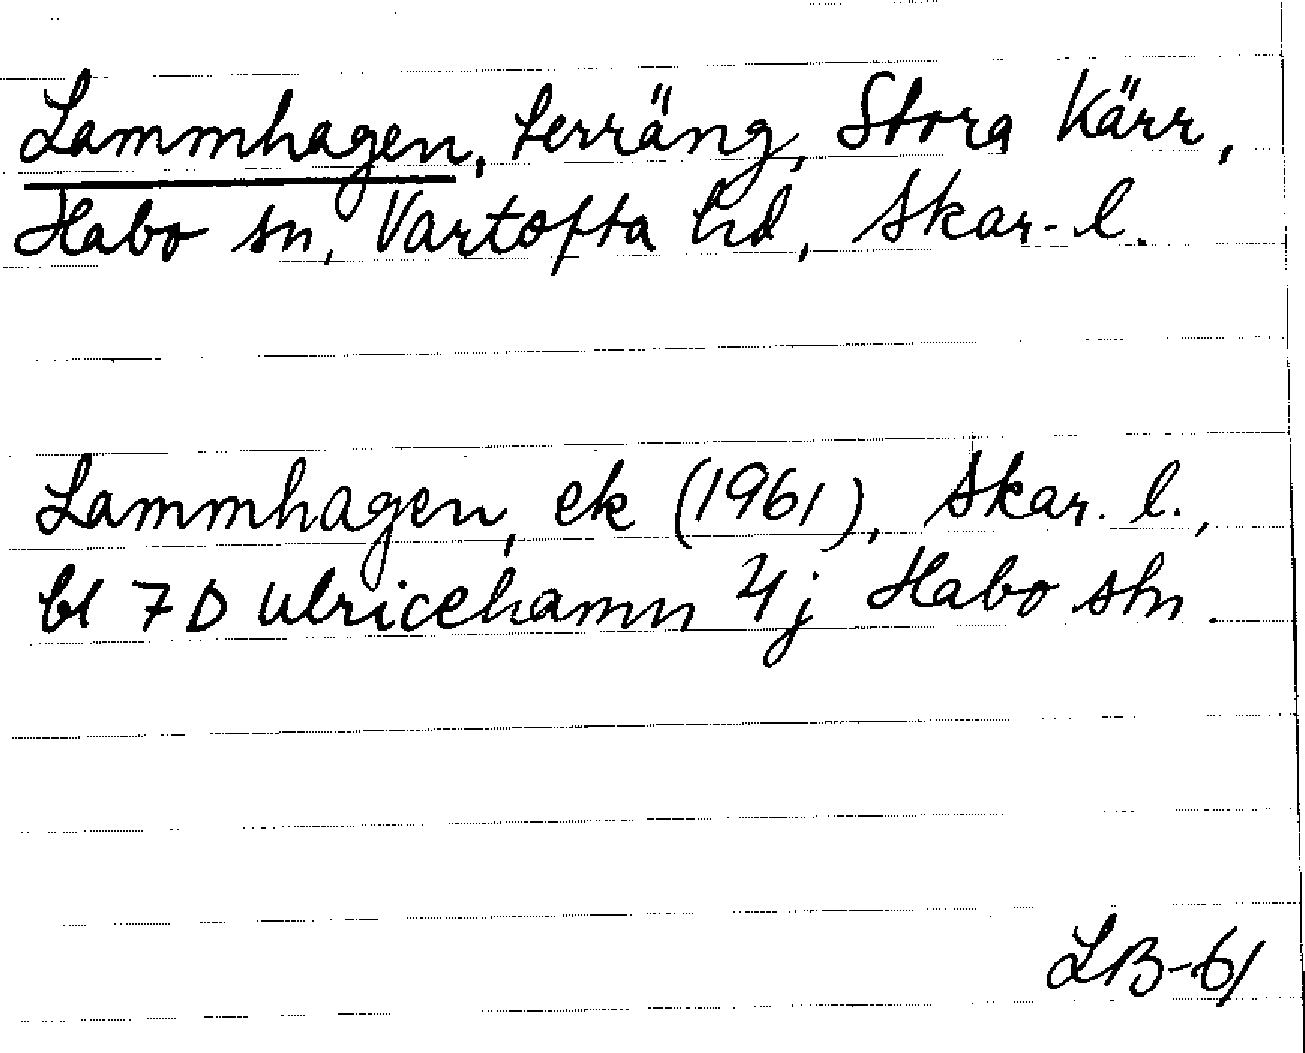 Lammhagen, terräng, Stora Kärr,
Habo sn, Vartofta hd, Skar. l.
Lammhagen, ek (1961), Skar. l.,
bl 7D Ulricehamn 4j Habo stn.
LB-61